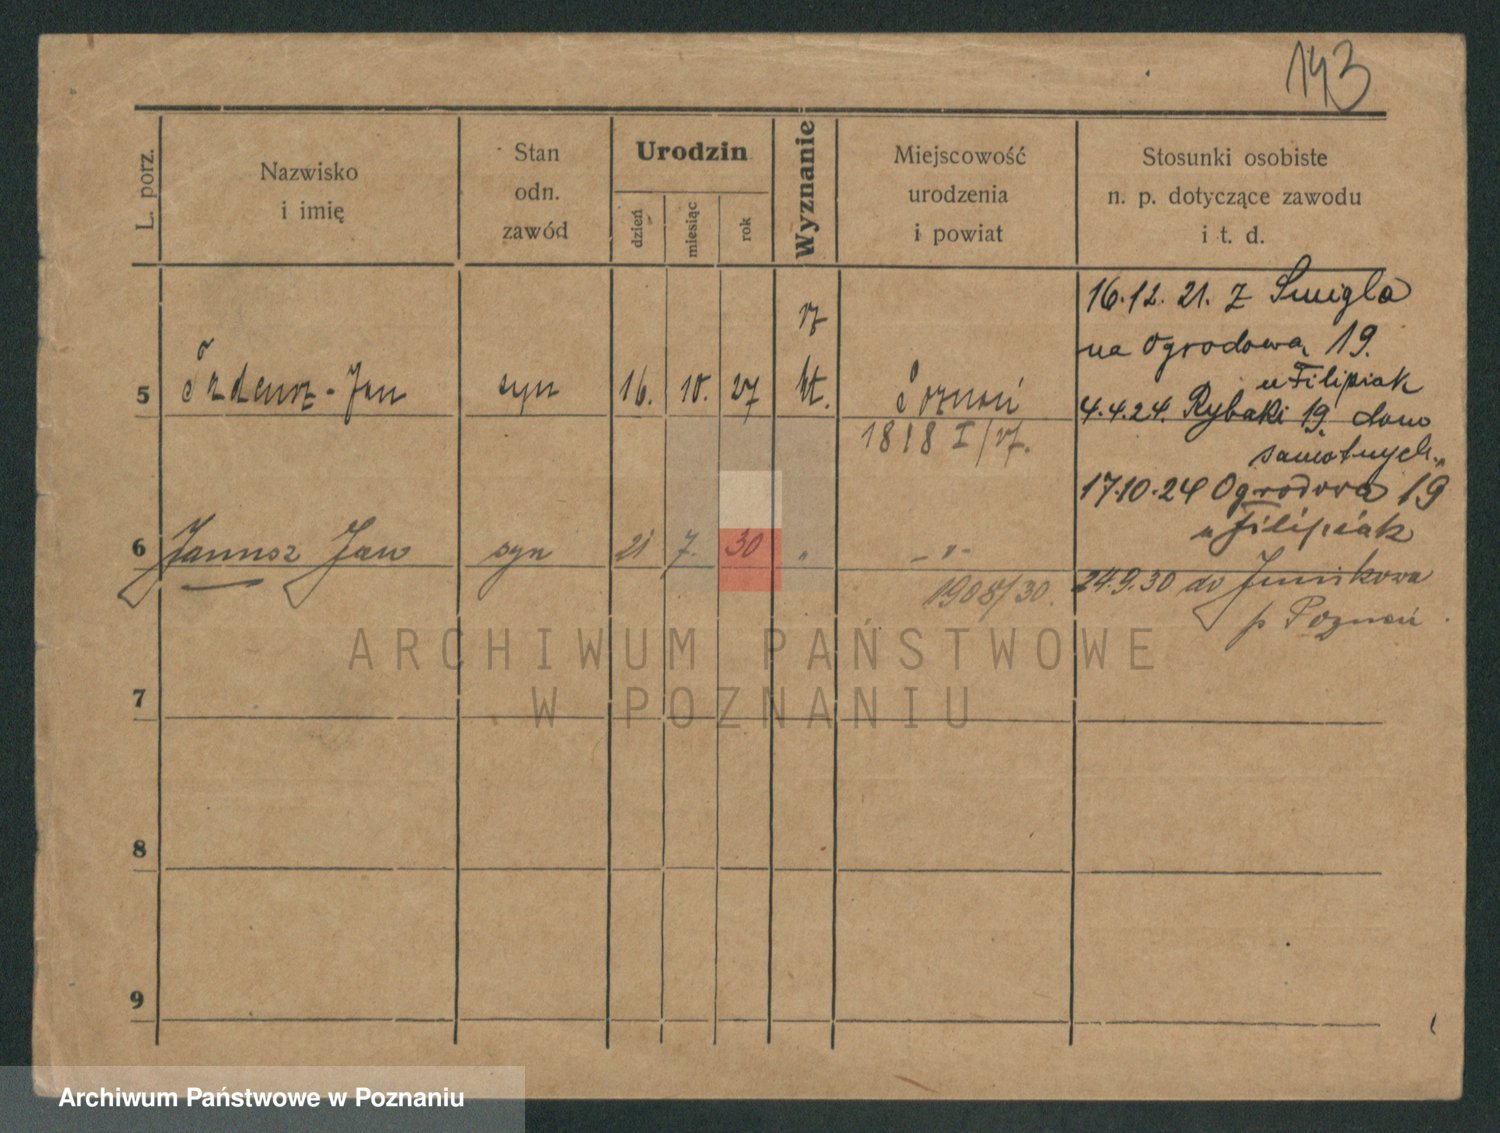 143
L. porz.
Nazwisko
i imię
Stan
odn.
zawód
Urodzin
dzień
miesiąc
rok
Wyznanie
Miejscowość
urodzenia
i powiat
Stosunki osobiste
n. p. dotyczące zawodu
i t. d.
16.12. 21. z Śmigla
na Ogrodową 19.
u Filipiak
rz
5 Tadeusz - Jan syn 16. 10. 27 kt. Poznań
4.4.24. Rybaki 19. dom
1818 I/27.
samotnych.
17.10.24 Ogrodowa 19
u Filipiak
6 Janusz Jan syn 21 7. 30 " - " -
1908/30.
24.9.30 do Junikowa
p Poznań
ARCHIWUM PAŃSTWOWE
W POZNANIU
7
8
9
Archiwum Państwowe w Poznaniu